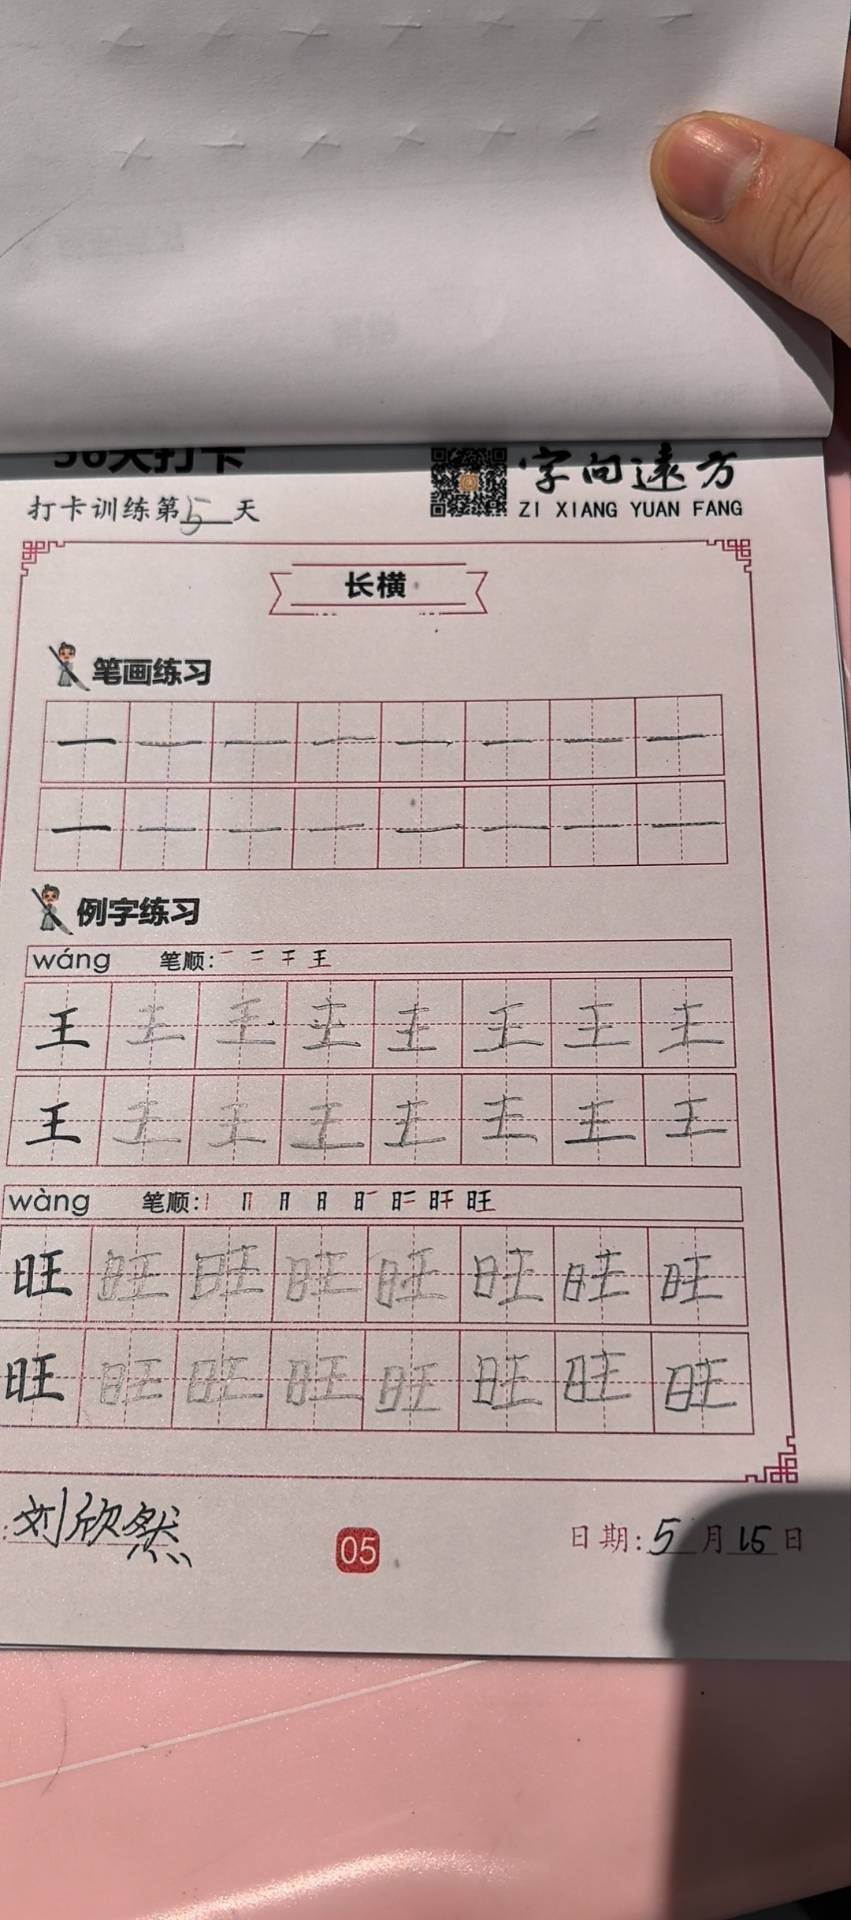 天打卡
字向远方
ZI XIANG YUAN FANG
打卡训练第5天
长横
笔画练习
一 一 一 一 一 一 一 一
一 一 一 一 一 一 一 一
例字练习
wáng 笔顺: 一 二 干 王
王 王 王 王 王 王 王 王
王 王 王 王 王 王 王 王
wàng 笔顺: 丨 冂 日 日 旺
旺 旺 旺 旺 旺 旺 旺 旺
旺 旺 旺 旺 旺 旺 旺 旺
刘欣然
05
日期:5月15日